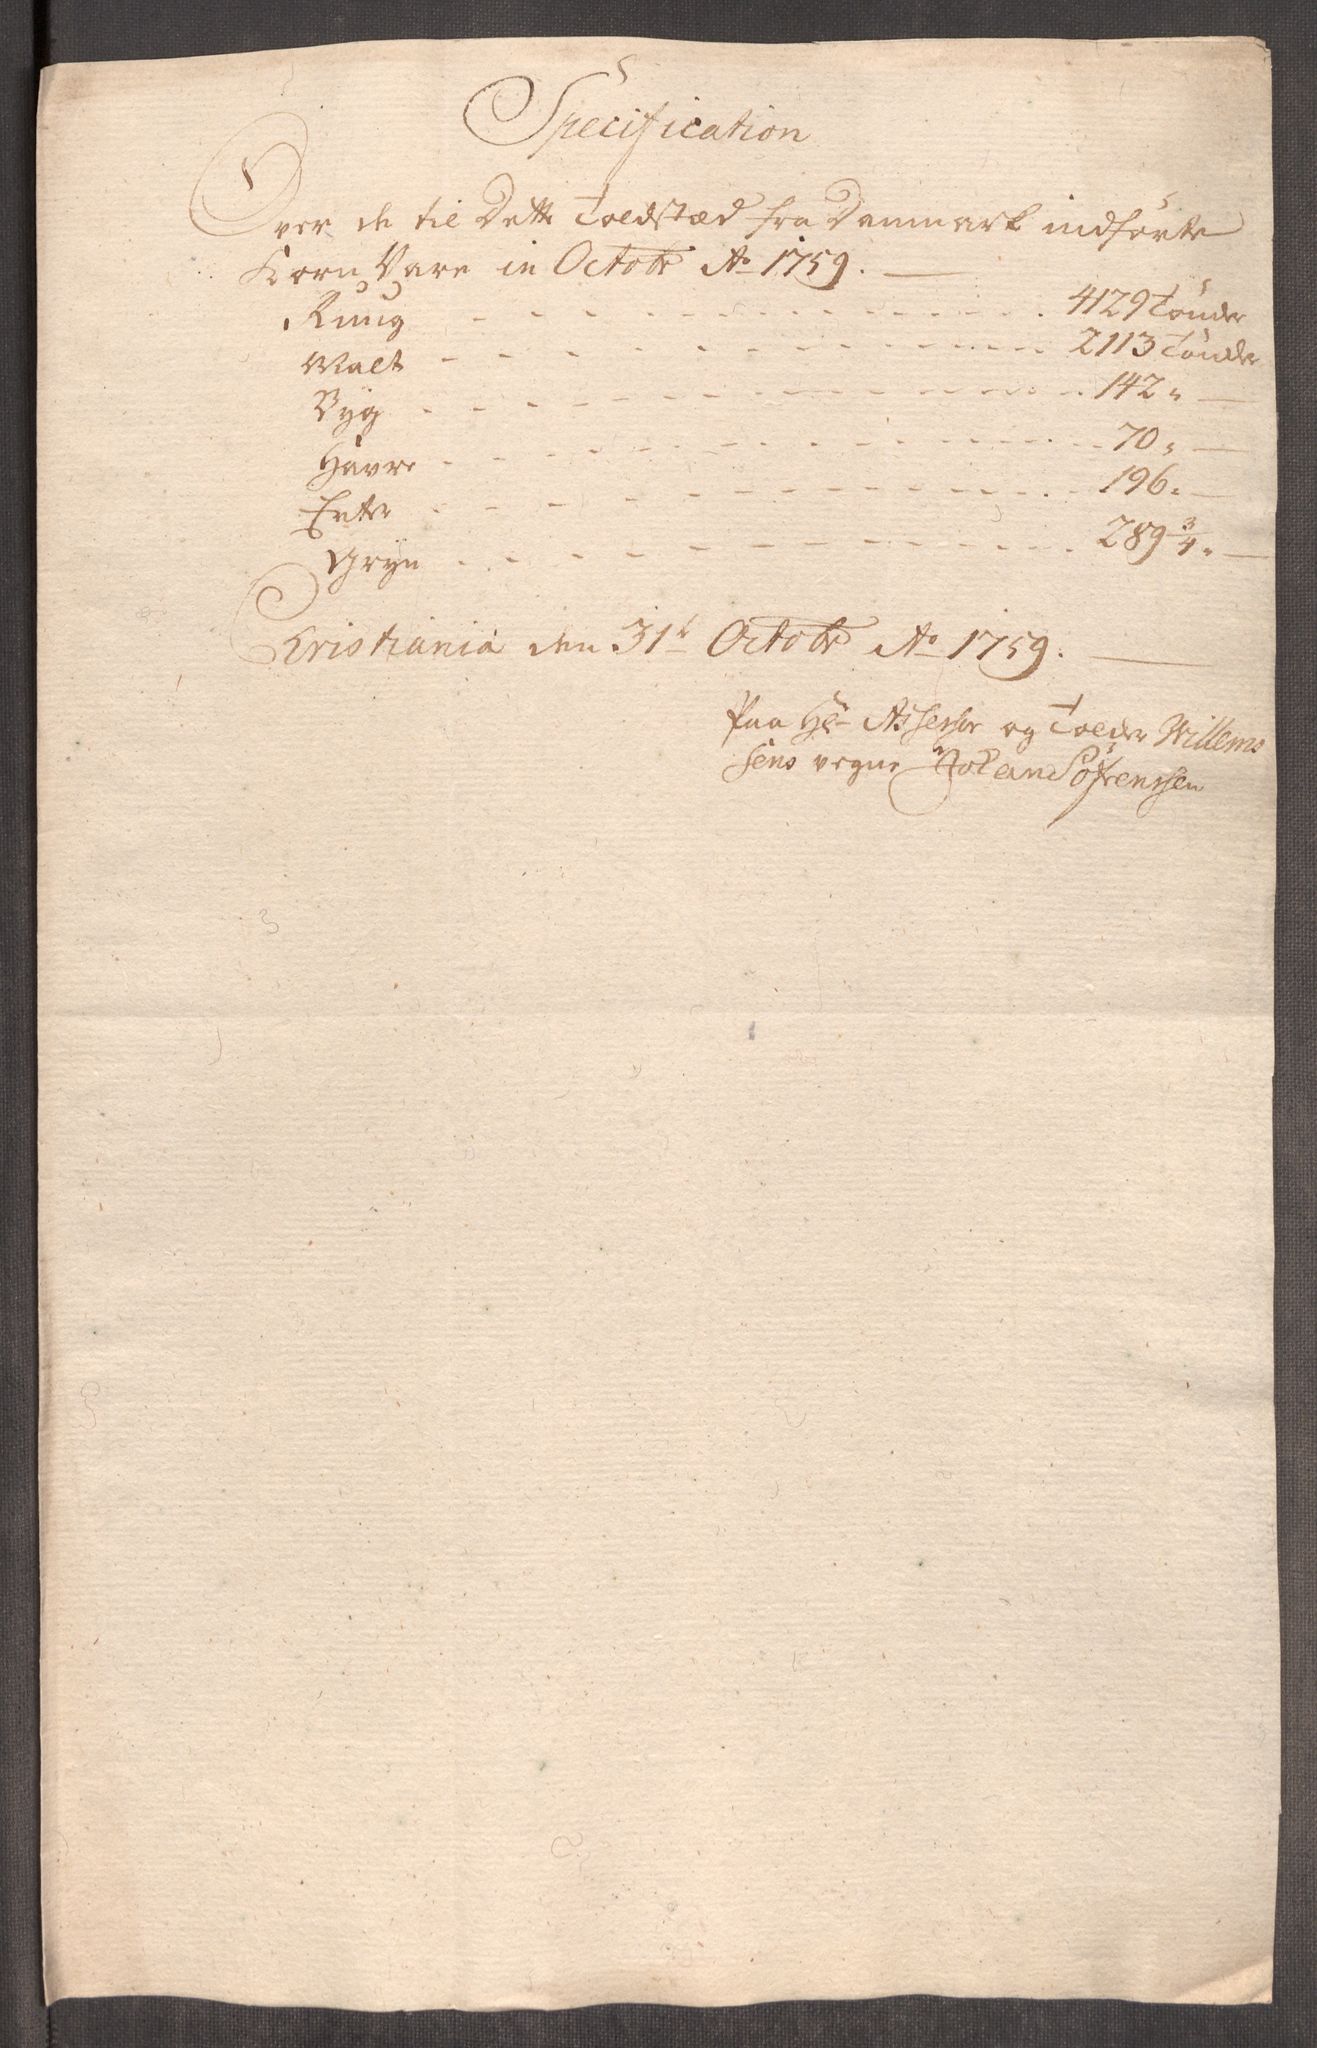 Specification
Over de til Dette Toldstæd fra Danmark indförte
Korn Vare in Octobr Ao 1759. —
Rúúg - - - - - - - - - - - 4129 Tönder
Malt - - - - - - - - - - - 2113 Tönder
Byg - - - - - - - - - - - 142 „ —
Havre - - - - - - - - - - - 70 „ —
Erter - - - - - - - - - - - 196 „ —
Gryn - - - - - - - - - - - 289 3/4 „ —
Christiania den 31t Octobr Ao 1759. —
Paa Hr Assessor og Tolder Willems
sens vegne Johan Sörenssen